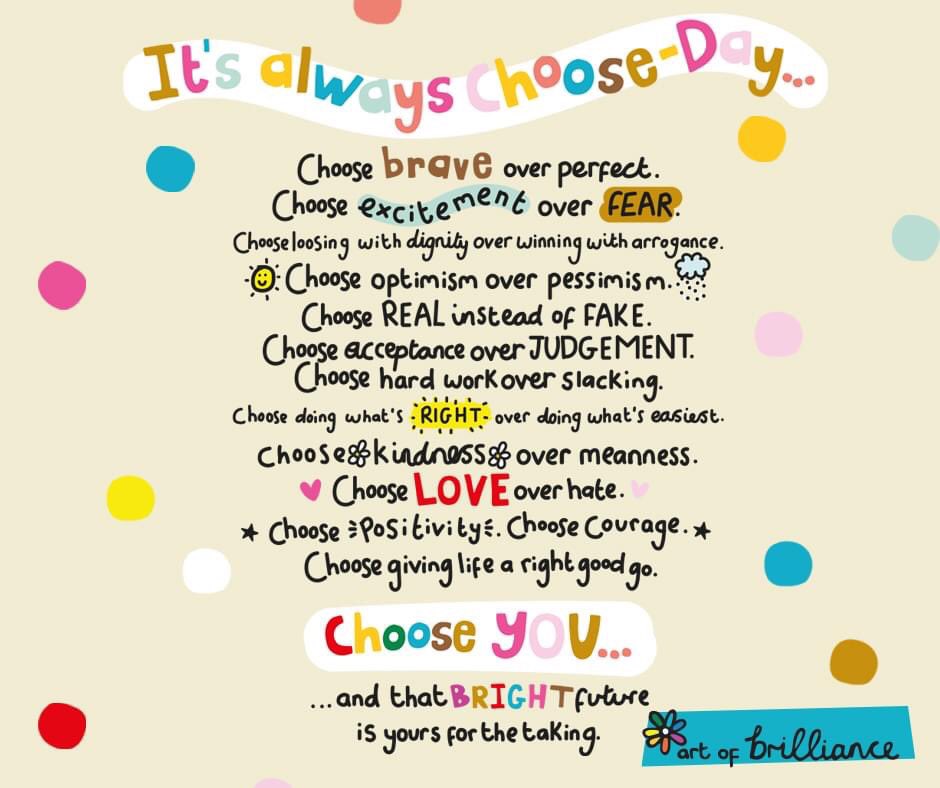 It's always Choose-Day...
Choose brave over perfect.
Choose excitement over FEAR.
Choose loosing with dignity over winning with arrogance.
Choose optimism over pessimism.
Choose REAL instead of FAKE.
Choose acceptance over JUDGEMENT.
Choose hard work over slacking.
Choose doing what's RIGHT over doing what's easiest.
Choose kindness over meanness.
Choose LOVE over hate.
Choose Positivity. Choose Courage.
Choose giving life a right good go.
Choose YOU...
...and that BRIGHT future
is yours for the taking.
art of brilliance